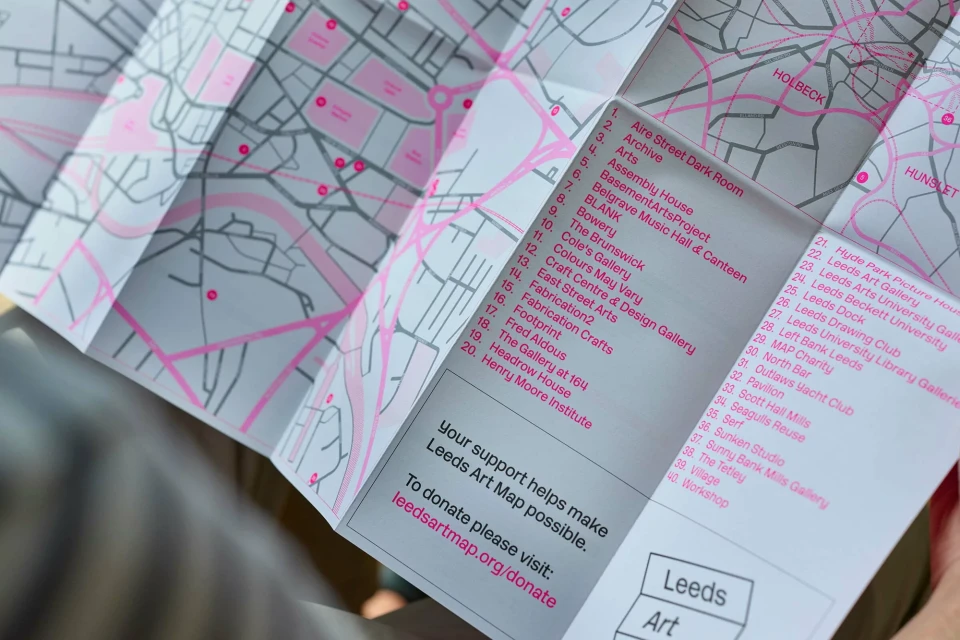 HOLBECK
HUNSLET
1. Aire Street Dark Room
2. Archive
3. Arts
4. Assembly House
5. BasementArtsProject
6. Belgrave Music Hall & Canteen
7. BLANK
8. Bowery
9. The Brunswick
10. Cole's Gallery
11. Colours May Vary
12. Craft Centre & Design Gallery
13. East Street Arts
14. Fabrication2
15. Fabrication Crafts
16. Footprint
17. Fred Aldous
18. The Gallery at 164
19. Headrow House
20. Henry Moore Institute
21. Hyde Park Picture Hous
22. Leeds Art Gallery
23. Leeds Arts University
24. Leeds Beckett University
25. Leeds Dock
26. Leeds Drawing Club
27. Leeds University Library Gallerie
28. Left Bank Leeds
29. MAP Charity
30. North Bar
31. Outlaws Yacht Club
32. Pavilion
33. Scott Hall Mills
34. Seagulls Reuse
35. Serf
36. Sunken Studio
37. Sunny Bank Mills Gallery
38. The Tetley
39. Village
40. Workshop
Your support helps make
Leeds Art Map possible.
To donate please visit:
leedsartmap.org/donate
Leeds
Art